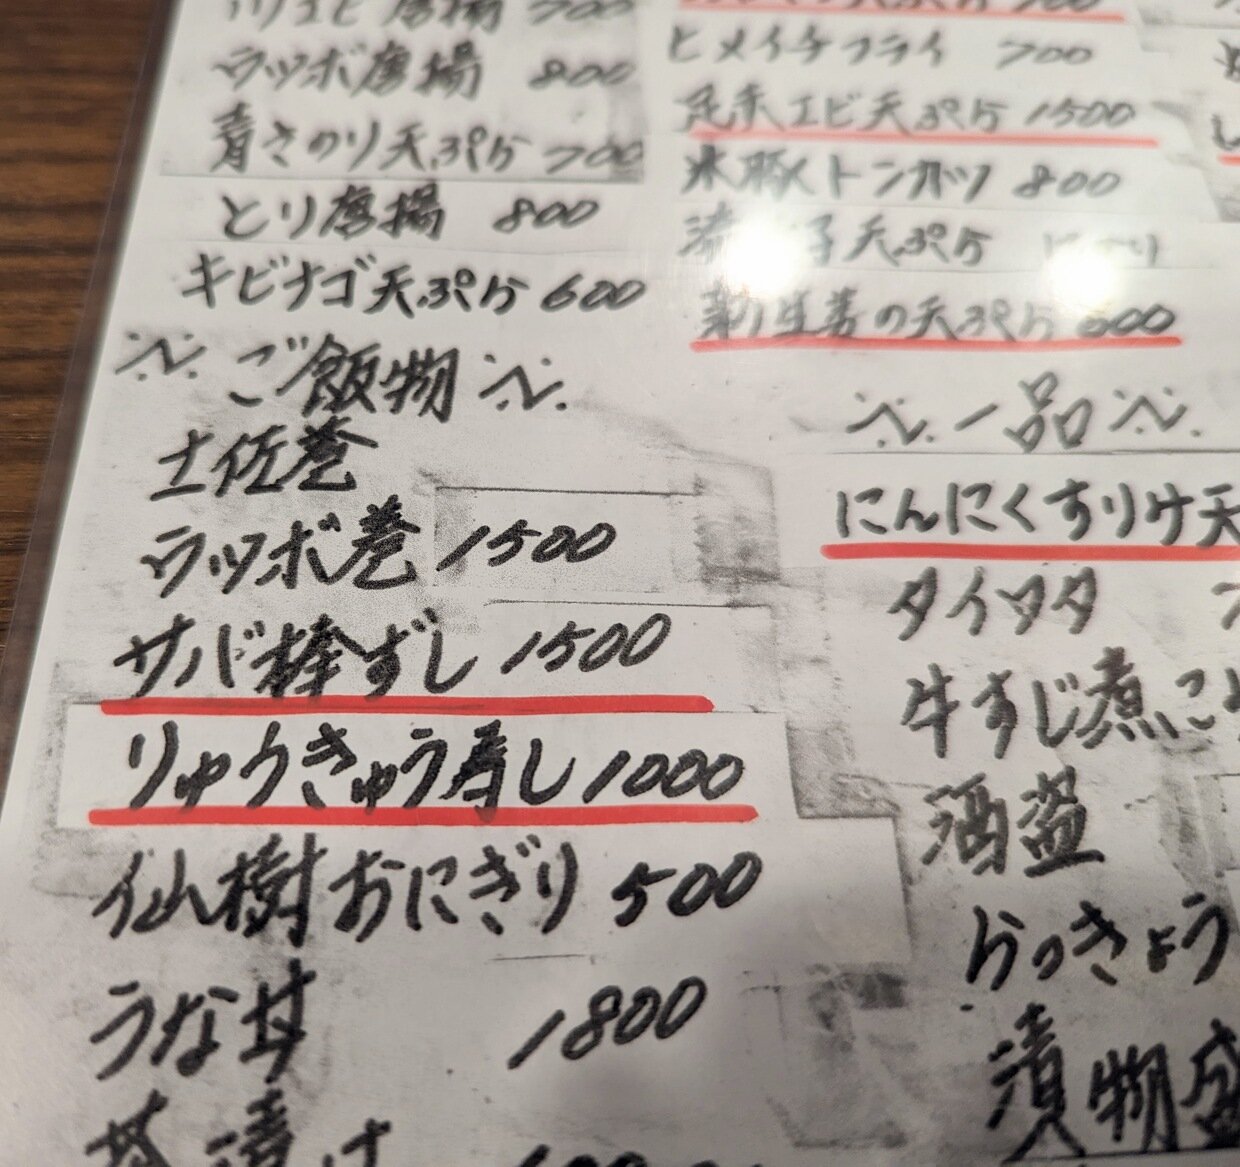 唐揚 700
ウツボ唐揚 800
青さのり天ぷら 700
とり唐揚 800
キビナゴ天ぷら 600
ご飯物
土佐巻
ウツボ巻 1500
サバ棒ずし 1500
りゅうきゅう寿し 1000
仙樹おにぎり 500
うな丼 1800
茶漬け
700
ヒメイチフライ 700
足赤エビ天ぷら 1500
米豚トンカツ 800
天ぷら
新生姜の天ぷら 600
一品
にんにくすりけ天
タイワタ
牛すじ煮こ
酒盗
らっきょう
漬物盛